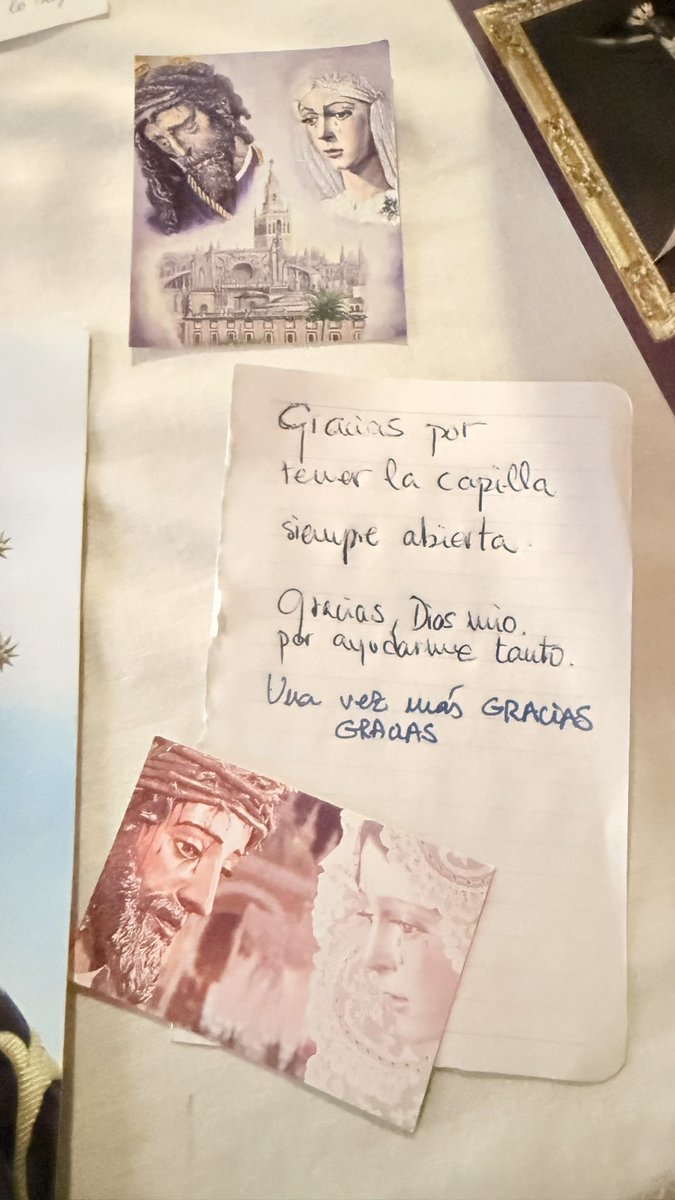 Gracias por
tener la capilla
siempre abierta.
Gracias, Dios mío.
por ayudarme tanto.
Una vez más GRACIAS
GRACIAS